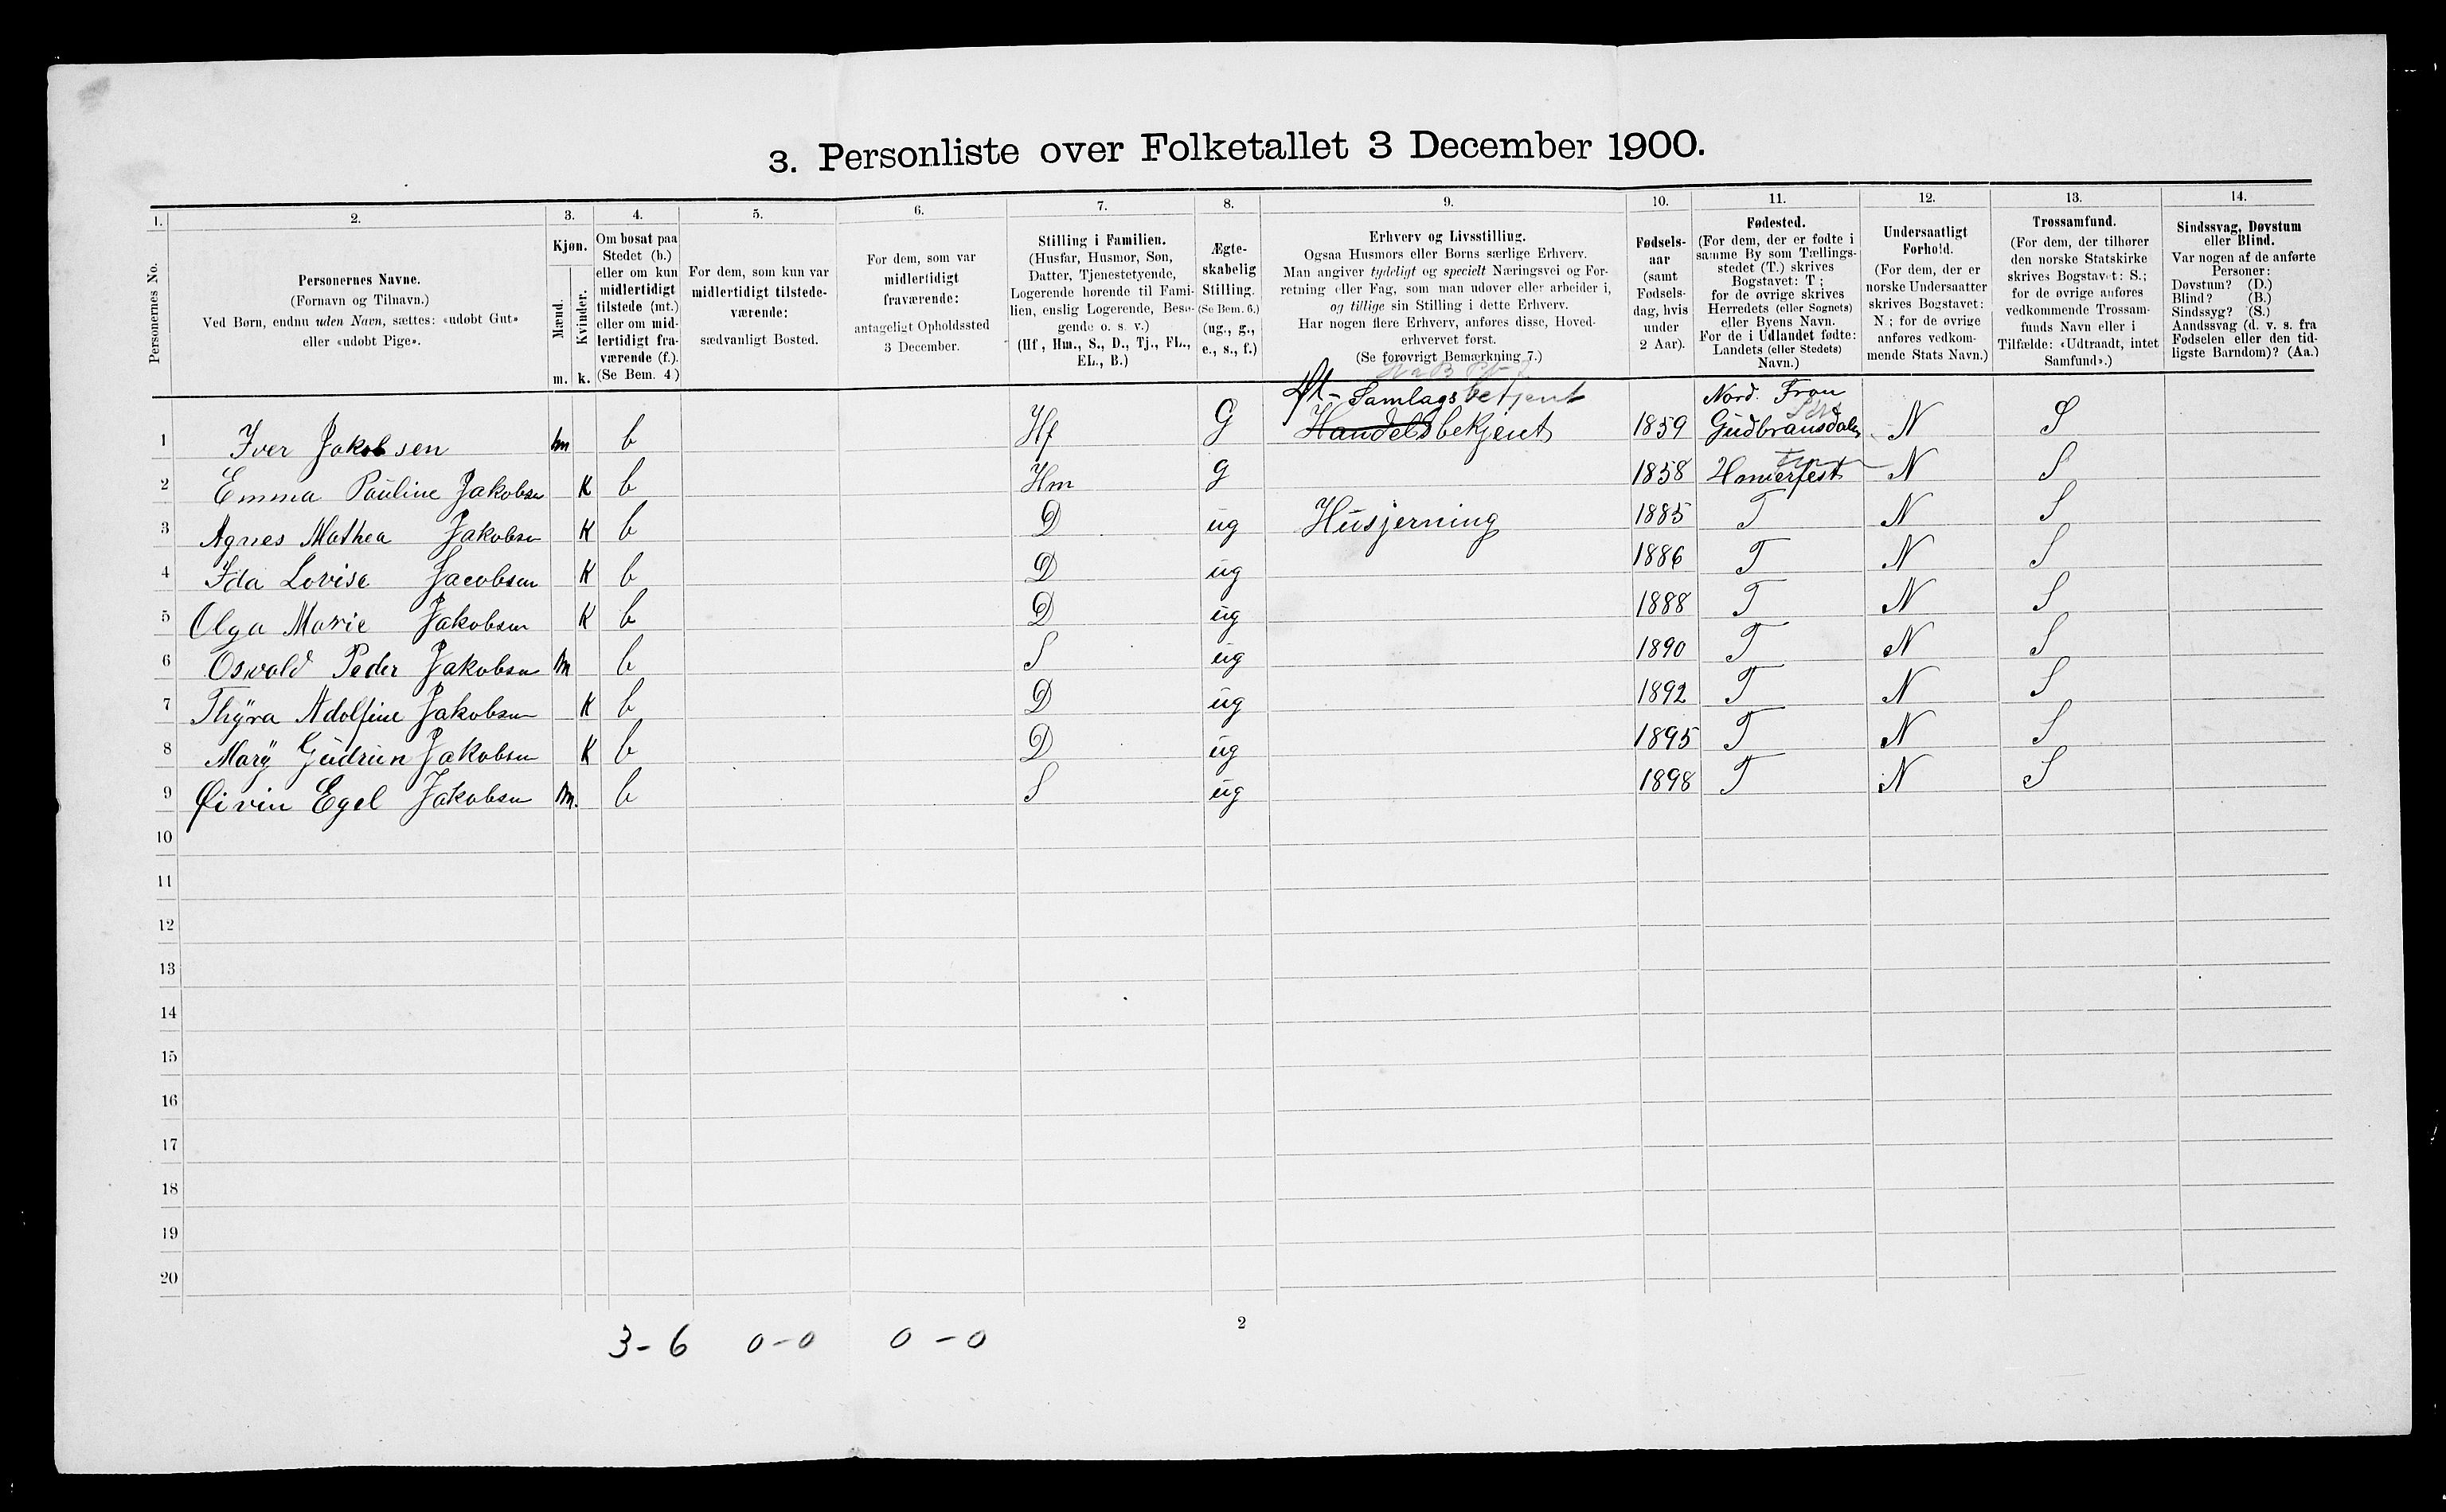 3. Personliste over Folketallet 3 December 1900.
1. 2. 3. 4. 5. 6. 7. 8. 9. 10. 11. 12. 13. 14.
Personernes No.
Personernes Navne.
(Fornavn og Tilnavn.)
Ved Børn, endnu uden Navn, sættes: «udøbt Gut»
eller «udøbt Pige».
Kjøn.
Mænd.
Kvinder.
m. k.
Om bosat paa
Stedet (b.)
eller om kun
midlertidigt
tilstede (mt.)
eller om mid-
lertidigt fra-
værende (f.).
(Se Bem. 4)
For dem, som kun var
midlertidigt tilstede-
værende:
sædvanligt Bosted.
For dem, som var
midlertidigt
fraværende:
antageligt Opholdssted
3 December.
Stilling i Familien.
(Husfar, Husmor, Søn,
Datter, Tjenestetyende,
Logerende hørende til Fami-
lien, enslig Logerende, Besø-
gende o. s. v.)
(Hf, Hm., S., D., Tj., FL.,
EL., B.)
Ægte-
skabelig
Stilling.
(Se Bem. 6.)
(ug., g.,
e., s., f.)
Erhverv og Livsstilling.
Ogsaa Husmors eller Børns særlige Erhverv.
Man angiver tydeligt og specielt Næringsvei og For-
retning eller Fag, som man udøver eller arbeider i,
og tillige sin Stilling i dette Erhverv.
Har nogen flere Erhverv, anføres disse, Hoved-
erhvervet først.
(Se forøvrigt Bemærkning 7.)
Fødsels-
aar
(samt
Fødsels-
dag, hvis
under
2 Aar).
Fødested.
(For dem, der er fødte i
samme By som Tællings-
stedet (T.) skrives
Bogstavet: T;
for de øvrige skrives
Herredets (eller Sognets)
eller Byens Navn.
For de i Udlandet fødte:
Landets (eller Stedets)
Navn.)
Undersaatligt
Forhold.
(For dem, der er
norske Undersaatter
skrives Bogstavet:
N; for de øvrige
anføres vedkom-
mende Stats Navn.)
Trossamfund.
(For dem, der tilhører
den norske Statskirke
skrives Bogstavet: S.;
for de øvrige anføres
vedkommende Trossam-
funds Navn eller i
Tilfælde: «Udtraadt, intet
Samfund».)
Sindssvag, Døvstum
eller Blind.
Var nogen af de anførte
Personer:
Døvstum? (D.)
Blind? (B.)
Sindssyg? (S.)
Aandssvag (d. v. s. fra
Fødselen eller den tid-
ligste Barndom)? (Aa.)
Samlagsbetjent Nord. Fron
1 Iver Jakobsen m b Hf G Handelsbekjent 1859 Gudbransdalen N S
2 Emma Pauline Jakobsen K b Hm g 1858 Hamerfest N S
3 Agnes Mathea Jakobsen K b D ug Husjerning 1885 T N S
4 Ida Lovise Jacobsen K b D ug 1886 T N S
5 Olga Marie Jakobsen K b D ug 1888 T N S
6 Osvald Peder Jakobsen m b S ug 1890 T N S
7 Thyra Adolfine Jakobsen K b D ug 1892 T N S
8 Mary Gudrun Jakobsen K b D ug 1895 T N S
9 Øivin Egel Jakobsen m. b S ug 1898 T N S
10
11
12
13
14
15
16
17
18
19
20
3-6 0-0 0-0
2